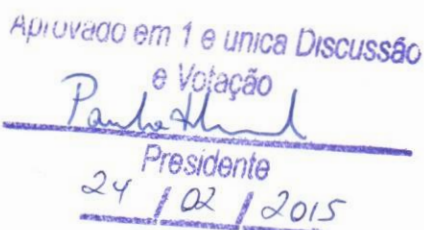 Aprovado em 1 e unica Discussão
e Votação
Presidente
24 / 02 / 2015